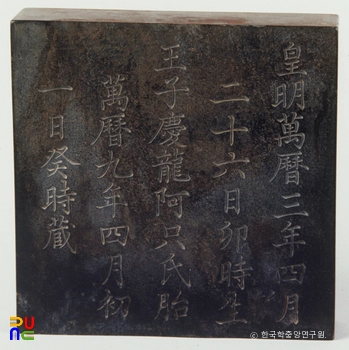 皇明萬曆三年四月
二十六日卯時生
王子慶龍阿只氏胎
萬曆九年四月初
一日癸時藏
PUNC
ⓒ 한국학중앙연구원